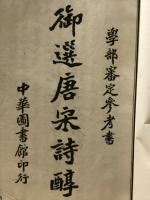 學部審定參考書
御選唐宋詩醇
中華圖書館印行